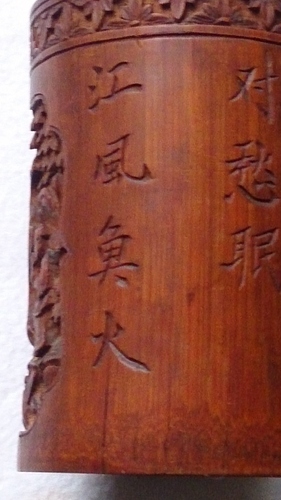 江風魚火
对愁眠